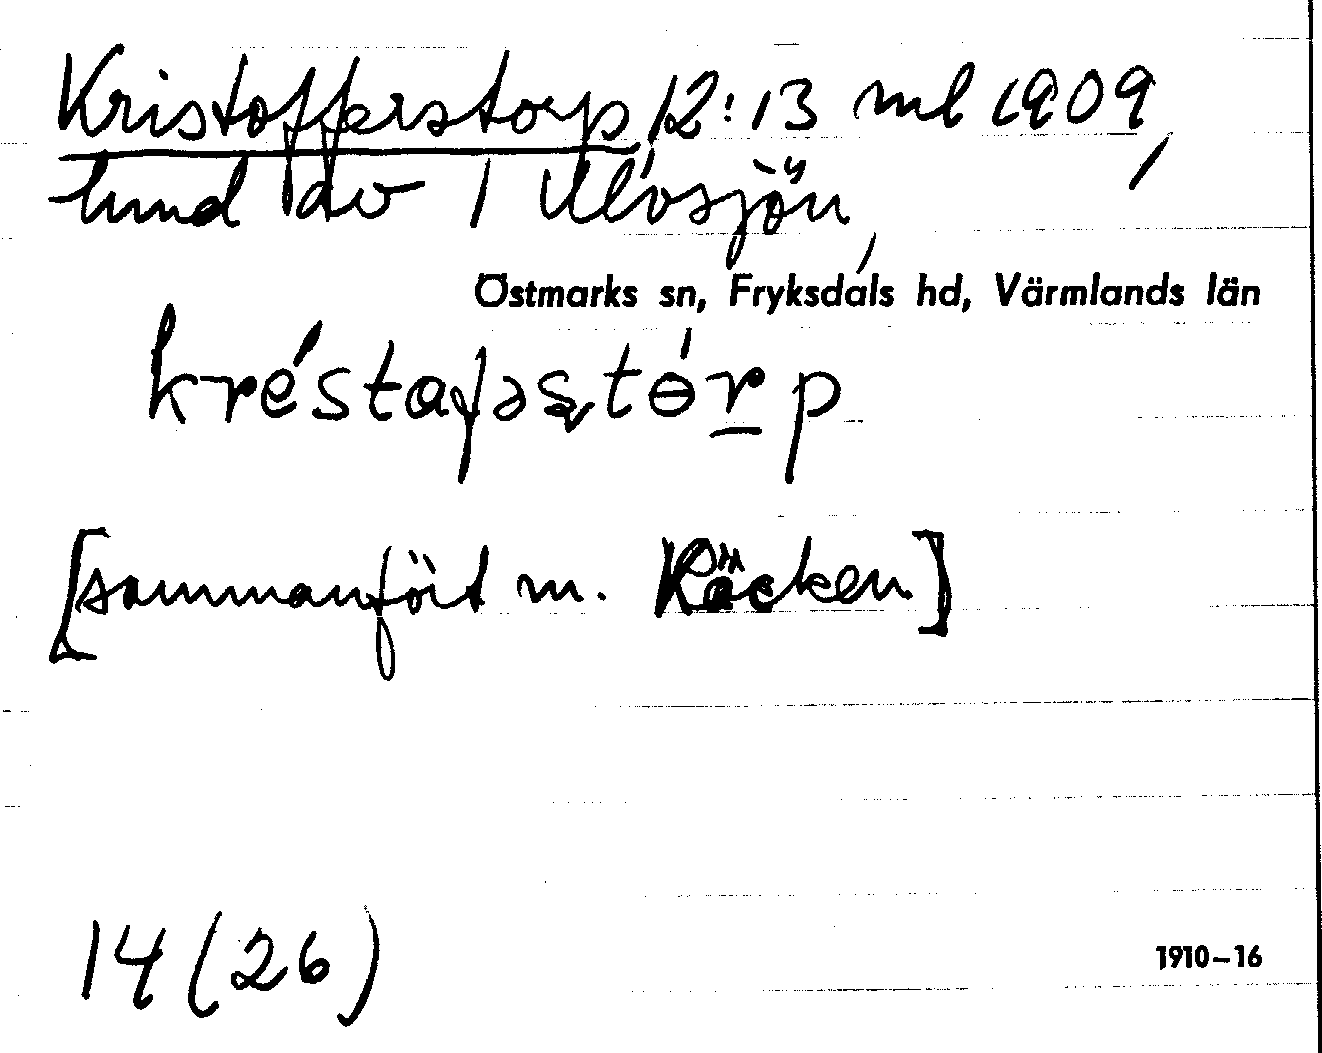 Kristofferstorp 12:13 ml 1909,
hmd av 1 Ulvsjön,
Östmarks sn, Fryksdals hd, Värmlands län
kréstafəstɵ́rp
[sammanfört m. Käcken]
14 (26)
1910–16